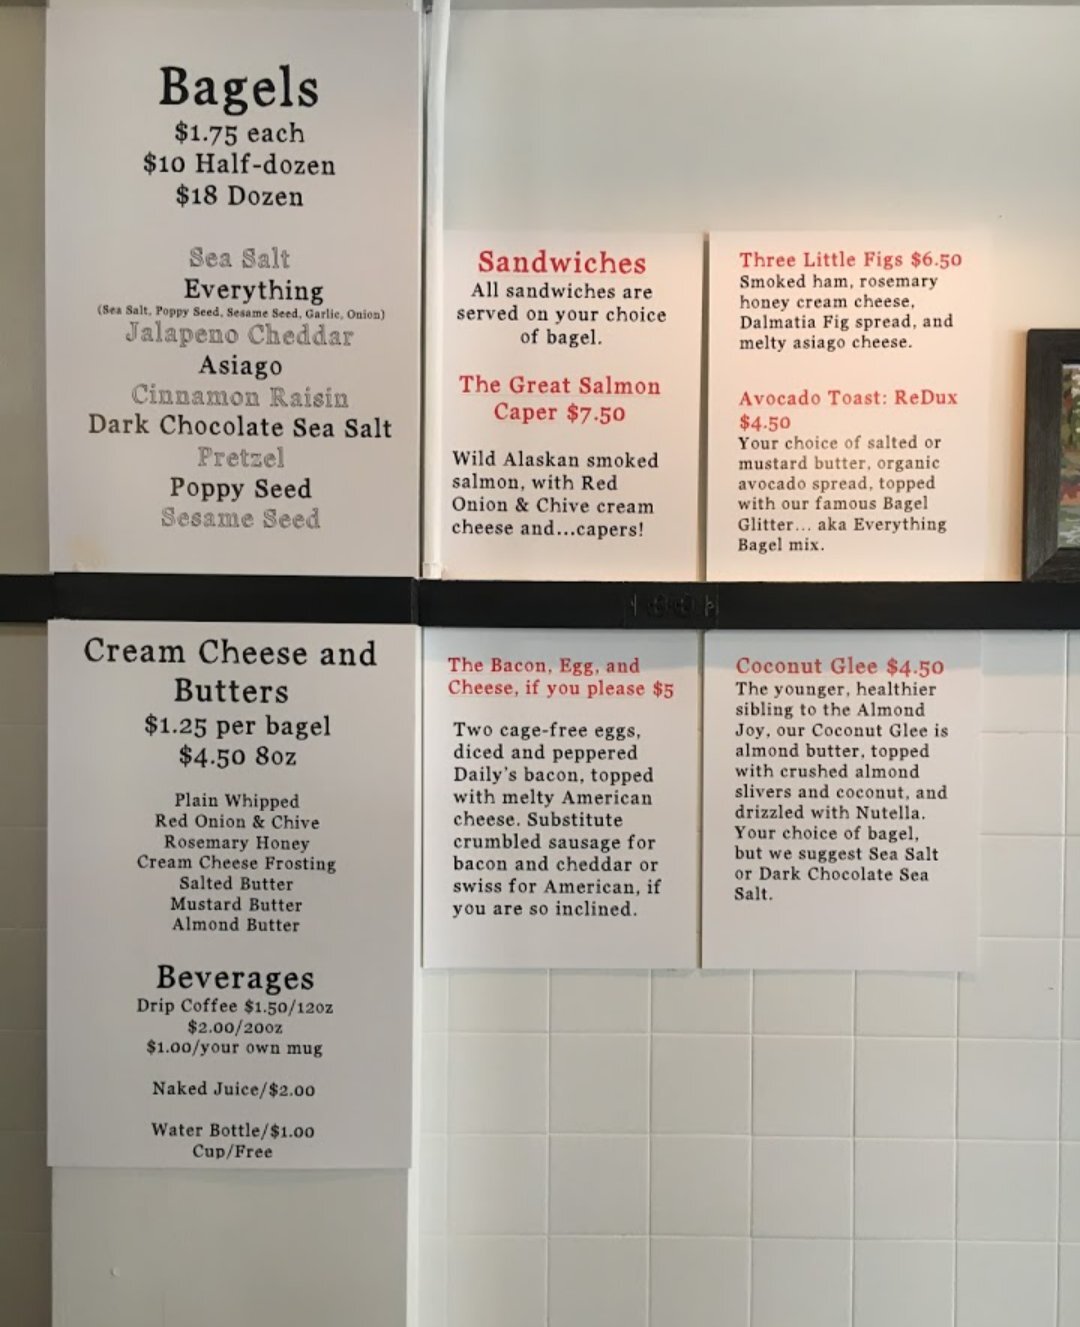 Bagels
$1.75 each
$10 Half-dozen
$18 Dozen
Sea Salt
Everything
(Sea Salt, Poppy Seed, Sesame Seed, Garlic, Onion)
Jalapeno Cheddar
Asiago
Cinnamon Raisin
Dark Chocolate Sea Salt
Pretzel
Poppy Seed
Sesame Seed
Sandwiches
All sandwiches are
served on your choice
of bagel.
The Great Salmon
Caper $7.50
Wild Alaskan smoked
salmon, with Red
Onion & Chive cream
cheese and...capers!
Three Little Figs $6.50
Smoked ham, rosemary
honey cream cheese,
Dalmatia Fig spread, and
melty asiago cheese.
Avocado Toast: ReDux
$4.50
Your choice of salted or
mustard butter, organic
avocado spread, topped
with our famous Bagel
Glitter... aka Everything
Bagel mix.
Cream Cheese and
Butters
$1.25 per bagel
$4.50 8oz
Plain Whipped
Red Onion & Chive
Rosemary Honey
Cream Cheese Frosting
Salted Butter
Mustard Butter
Almond Butter
Beverages
Drip Coffee $1.50/12oz
$2.00/20oz
$1.00/your own mug
Naked Juice/$2.00
Water Bottle/$1.00
Cup/Free
The Bacon, Egg, and
Cheese, if you please $5
Two cage-free eggs,
diced and peppered
Daily's bacon, topped
with melty American
cheese. Substitute
crumbled sausage for
bacon and cheddar or
swiss for American, if
you are so inclined.
Coconut Glee $4.50
The younger, healthier
sibling to the Almond
Joy, our Coconut Glee is
almond butter, topped
with crushed almond
slivers and coconut, and
drizzled with Nutella.
Your choice of bagel,
but we suggest Sea Salt
or Dark Chocolate Sea
Salt.